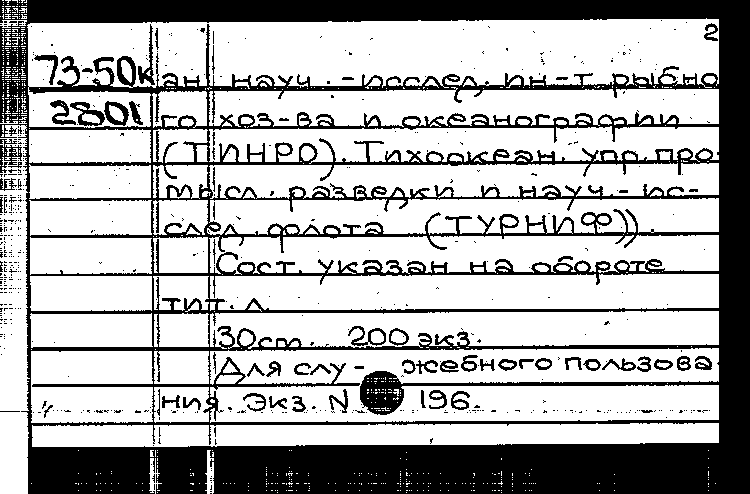 2
73-50к ан науч.-исслед. ин-т рыбно
2801 го хоз-ва и океанографии
(ТИНРО). Тихоокеан. упр. про-
мысл. разведки и науч.-ис-
след. флота (ТУРНИФ)).
Сост. указан на обороте
тит. л.
30 см. 200 экз.
Для слу- жебного пользова-
ния. Экз. N 196.